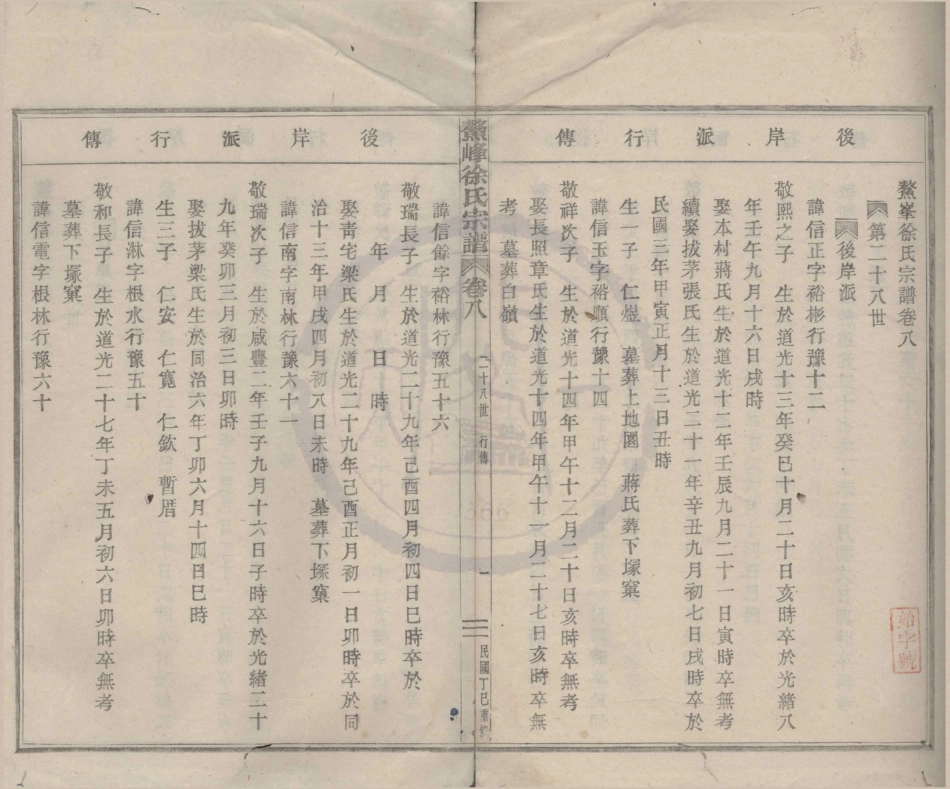 後岸派行傳
鰲峯徐氏宗譜卷八
第二十八世
後岸派
諱信正字裕彬行豫十二
敬熙之子　生於道光十三年癸巳十月二十日亥時卒於光緒八
年壬午九月十六日戌時
娶本村蔣氏生於道光十二年壬辰九月二十一日寅時卒無考
續娶拔茅張氏生於道光二十一年辛丑九月初七日戌時卒於
民國三年甲寅正月十三日丑時
生一子　仁煜　墓葬上地園　蔣氏葬下塚窠
諱信玉字裕順行豫十四
敬祥次子　生於道光十四年甲午十二月二十日亥時卒無考
娶長照章氏生於道光十四年甲午十一月二十七日亥時卒無
考　墓葬白嶺
鰲峰徐氏宗譜　卷八　二十八世　行傳　一　民國丁巳重修
後岸派行傳
諱信餘字裕林行豫五十六
敬瑞長子　生於道光二十九年己酉四月初四日巳時卒於
年　月　日　時
娶青宅梁氏生於道光二十九年己酉正月初一日卯時卒於同
治十三年甲戌四月初八日未時　墓葬下塚窠
諱信南字南林行豫六十一
敬瑞次子　生於咸豐二年壬子九月十六日子時卒於光緒二十
九年癸卯三月初三日卯時
娶拔茅梁氏生於同治六年丁卯六月十四日巳時
生三子　仁安　仁寬　仁欽　暫厝
諱信淋字根水行豫五十
敬和長子　生於道光二十七年丁未五月初六日卯時卒無考
墓葬下塚窠
諱信電字根林行豫六十
始字號